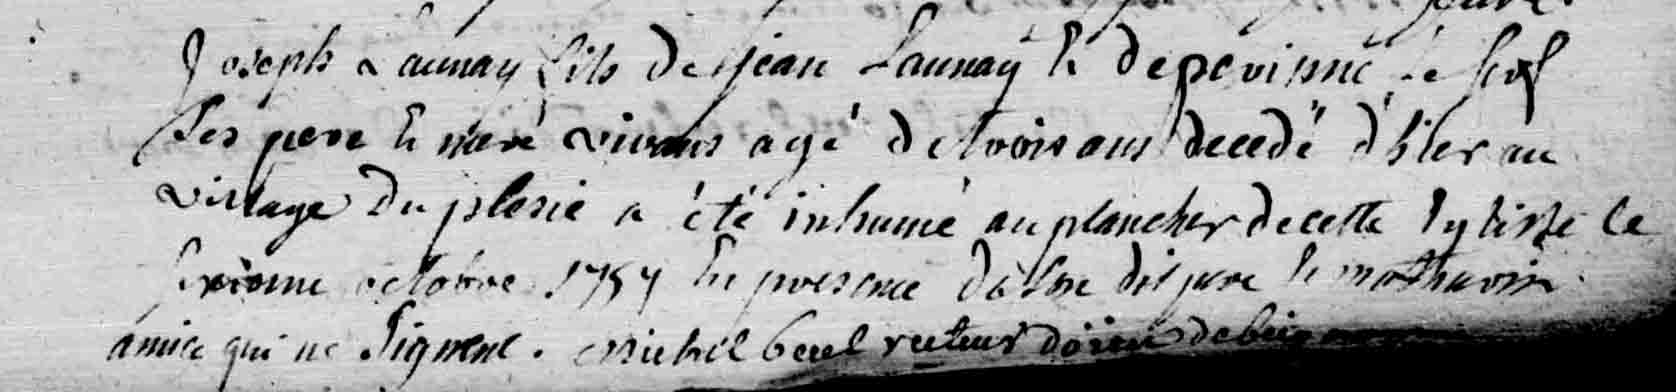 Joseph Launay fils de jean Launay & de perinne le
ses pere & mere vivans agé de trois ans decedé d'hier au
village du plesié a été inhumé au plancher de cette Eglise le
sixieme octobre 1757 en presence de son dit pere & mathurin
amice qui ne signent. Michel becel recteur doien de